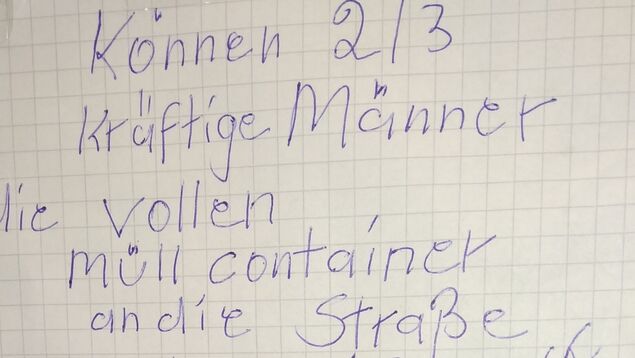 Können 2/3
kräftige Männer
die vollen
müll container
an die Straße